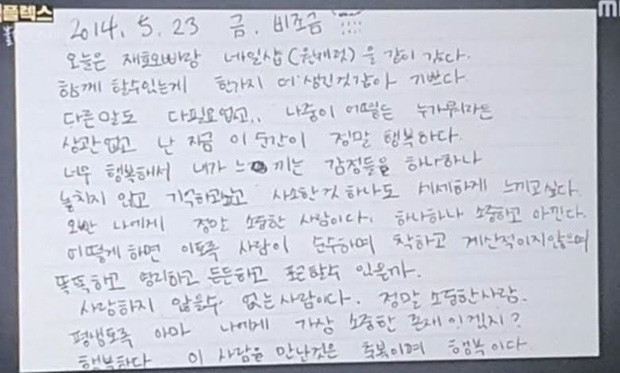 플렉스
MB
2014. 5. 23 금. 비조금
오늘은 재효오빠랑 네일샵 (유네일) 을 같이 갔다.
함께 할수있는게 한가지 더 생긴것같아 기쁘다
다른말도 다필요없고.. 나중이 어떻든 누가뭐라든
상관없고 난 지금 이 순간이 정말 행복하다.
너무 행복해서 내가 느끼는 감정들을 하나하나
놓치지 않고 기억하고싶고 사소한것 하나도 세세하게 느끼고싶다.
오빤 나에게 정말 소중한 사람이다. 하나하나 소중하고 아낀다.
어떻게 하면 이토록 사람이 순수하며 착하고 계산적이지않으며
똑똑하고 영리하고 든든하고 포근할수 있을까.
사랑하지 않을수 없는사람이다. 정말 소중한사람.
평생토록 아마 나에게 가장 소중한 존재이겠지?
행복하다 이 사람을 만난것은 축복이며 행복이다.